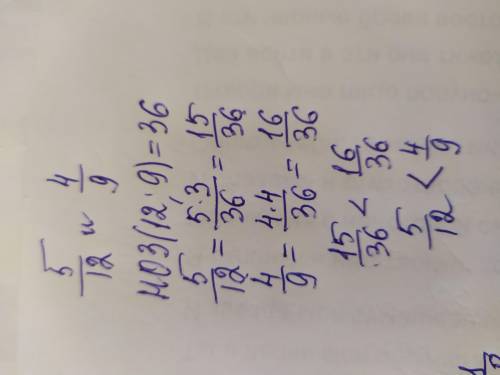 5/12 и 4/9
НОЗ(12; 9)=36
5/12 = 5·3/36 = 15/36
4/9 = 4·4/36 = 16/36
15/36 < 16/36
5/12 < 4/9